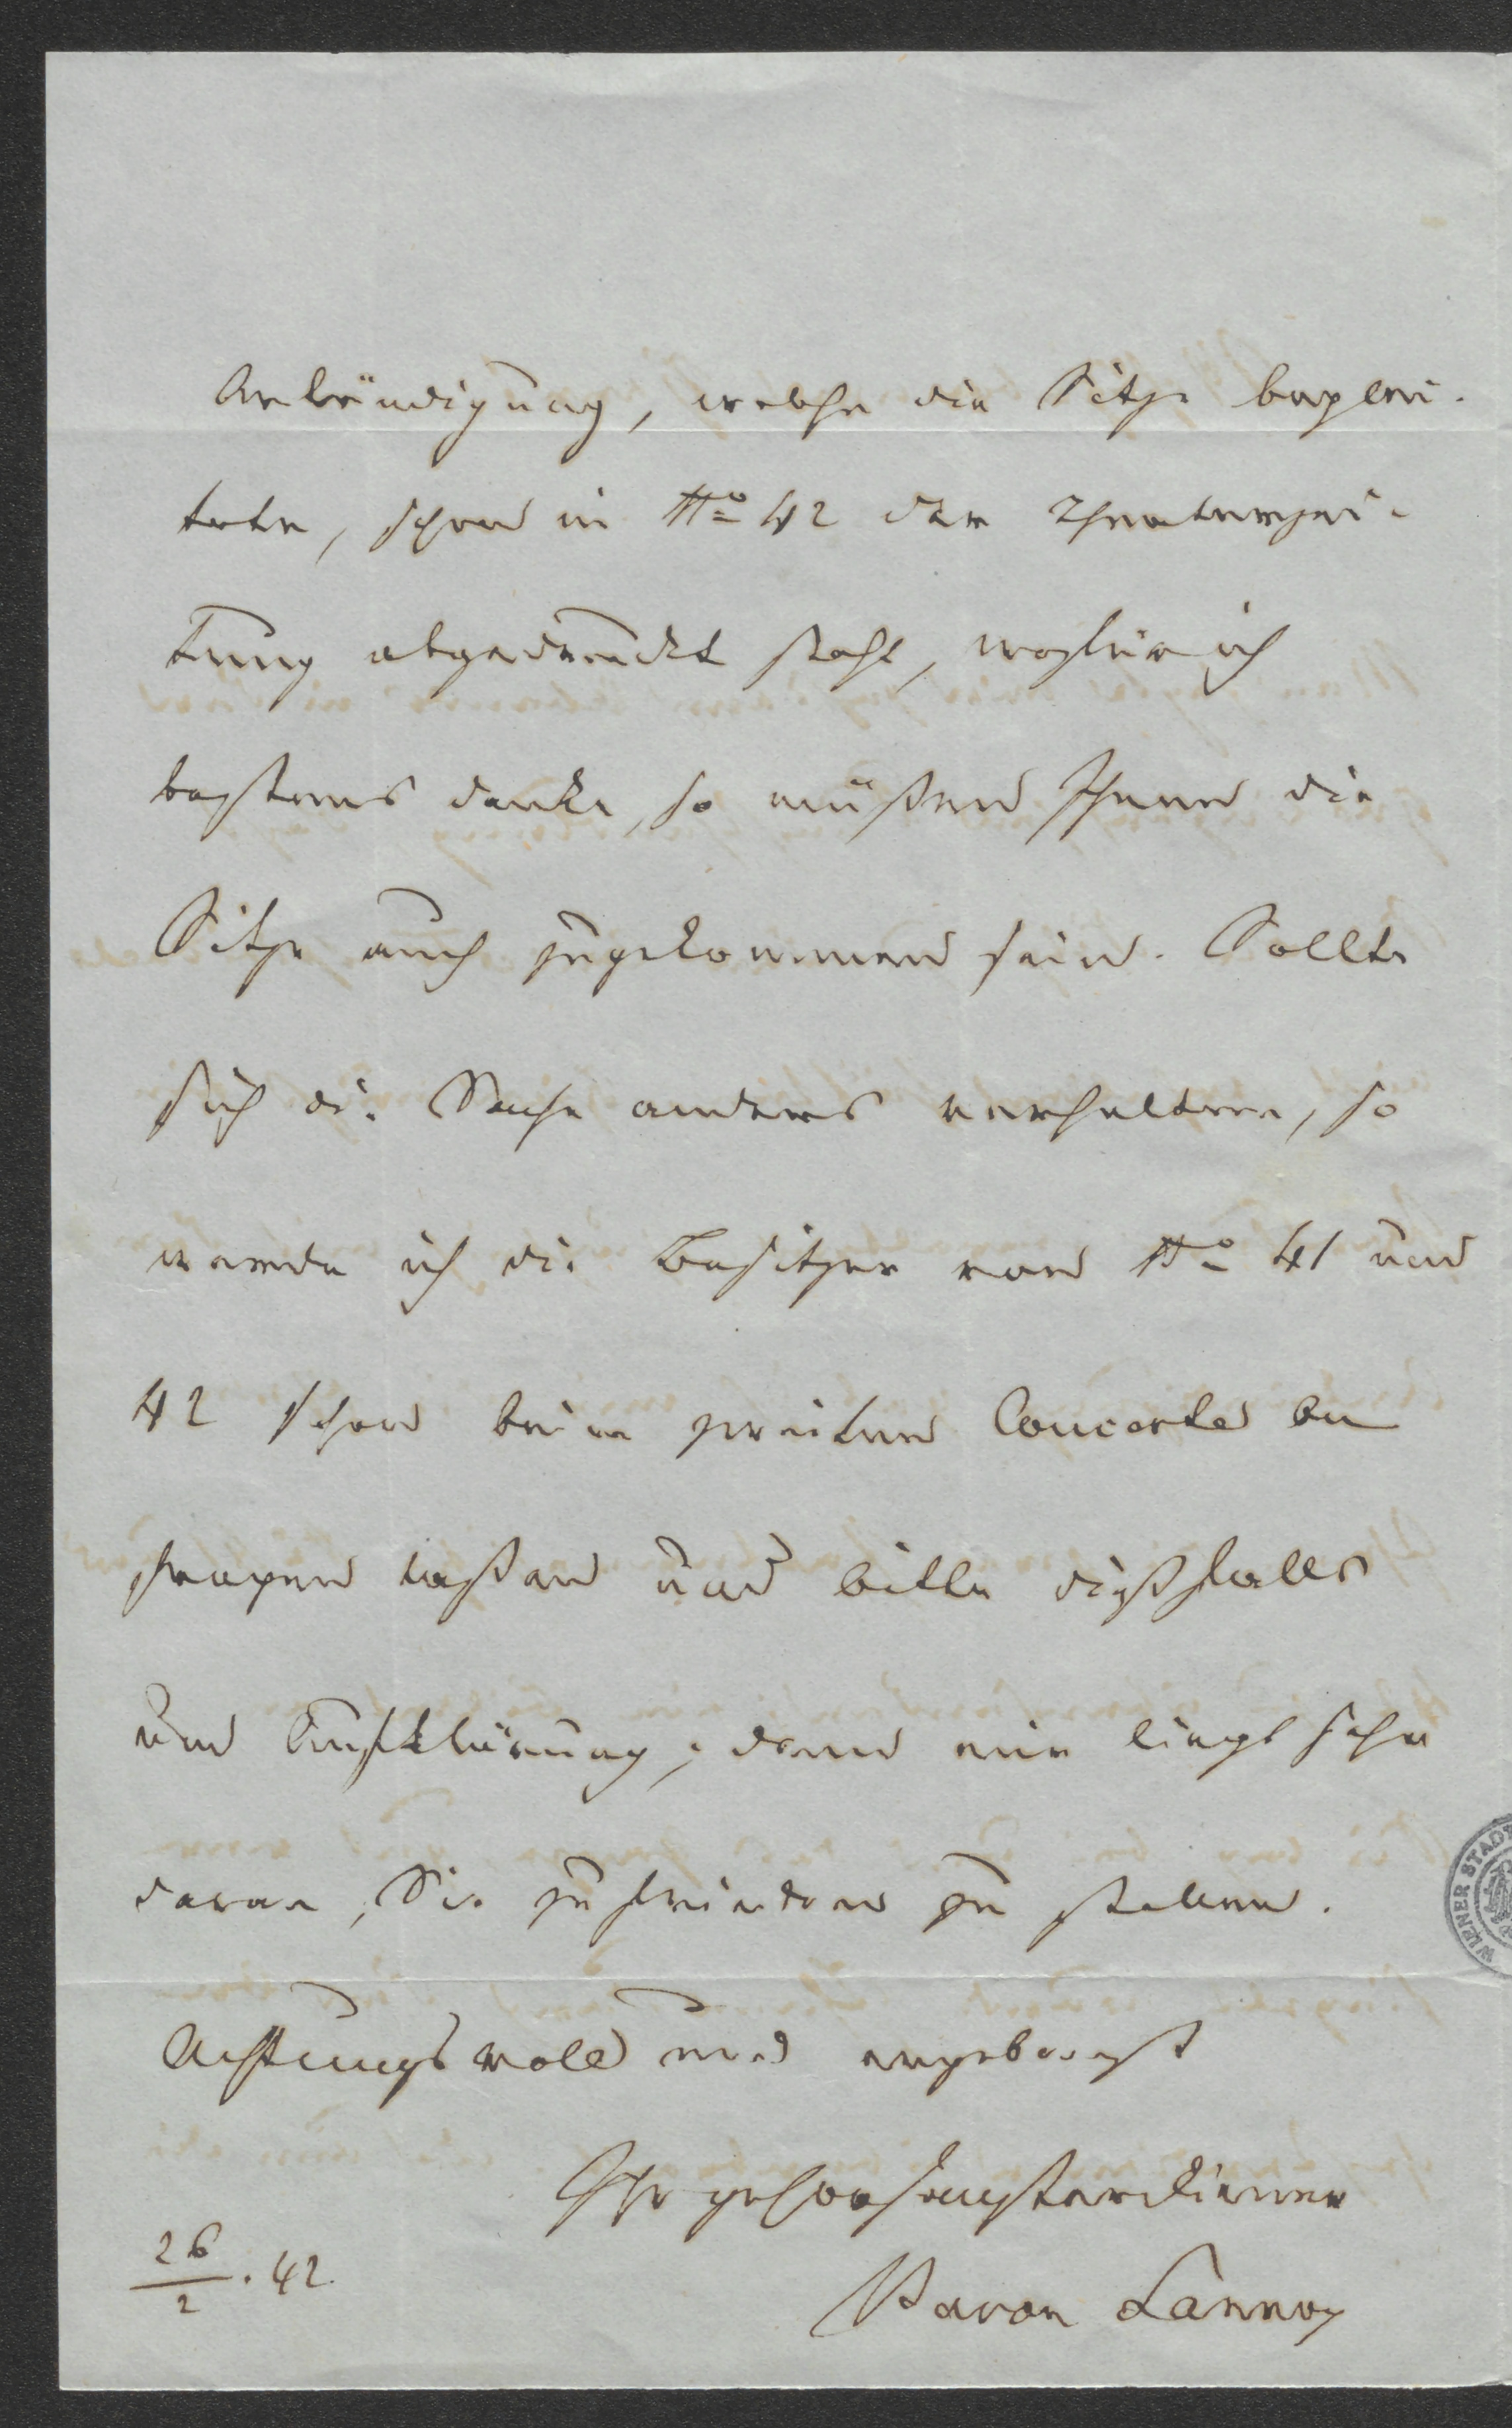 Ankündigung, welche die Sitze beglei-
tete, schon in No 42 der Theaterzei-
tung abgedruckt steht, wofür ich
bestens danke, so müßen Ihnen die
Sitze auch zugekommen sein. Sollte
sich die Sache anders verhalten, so
werde ich die Besitzer von No 41 und
42 schon beim zweiten Concerte be
fragen laßen und bitte dießfalls
um Aufklärung, denn mir liegt sehr
daran, Sie zufrieden zu stellen.
Achtungsvoll und ergebenst
Ihr gehorsamster Diener
Baron Lannoy
26/2. 42.
WIENER STADT